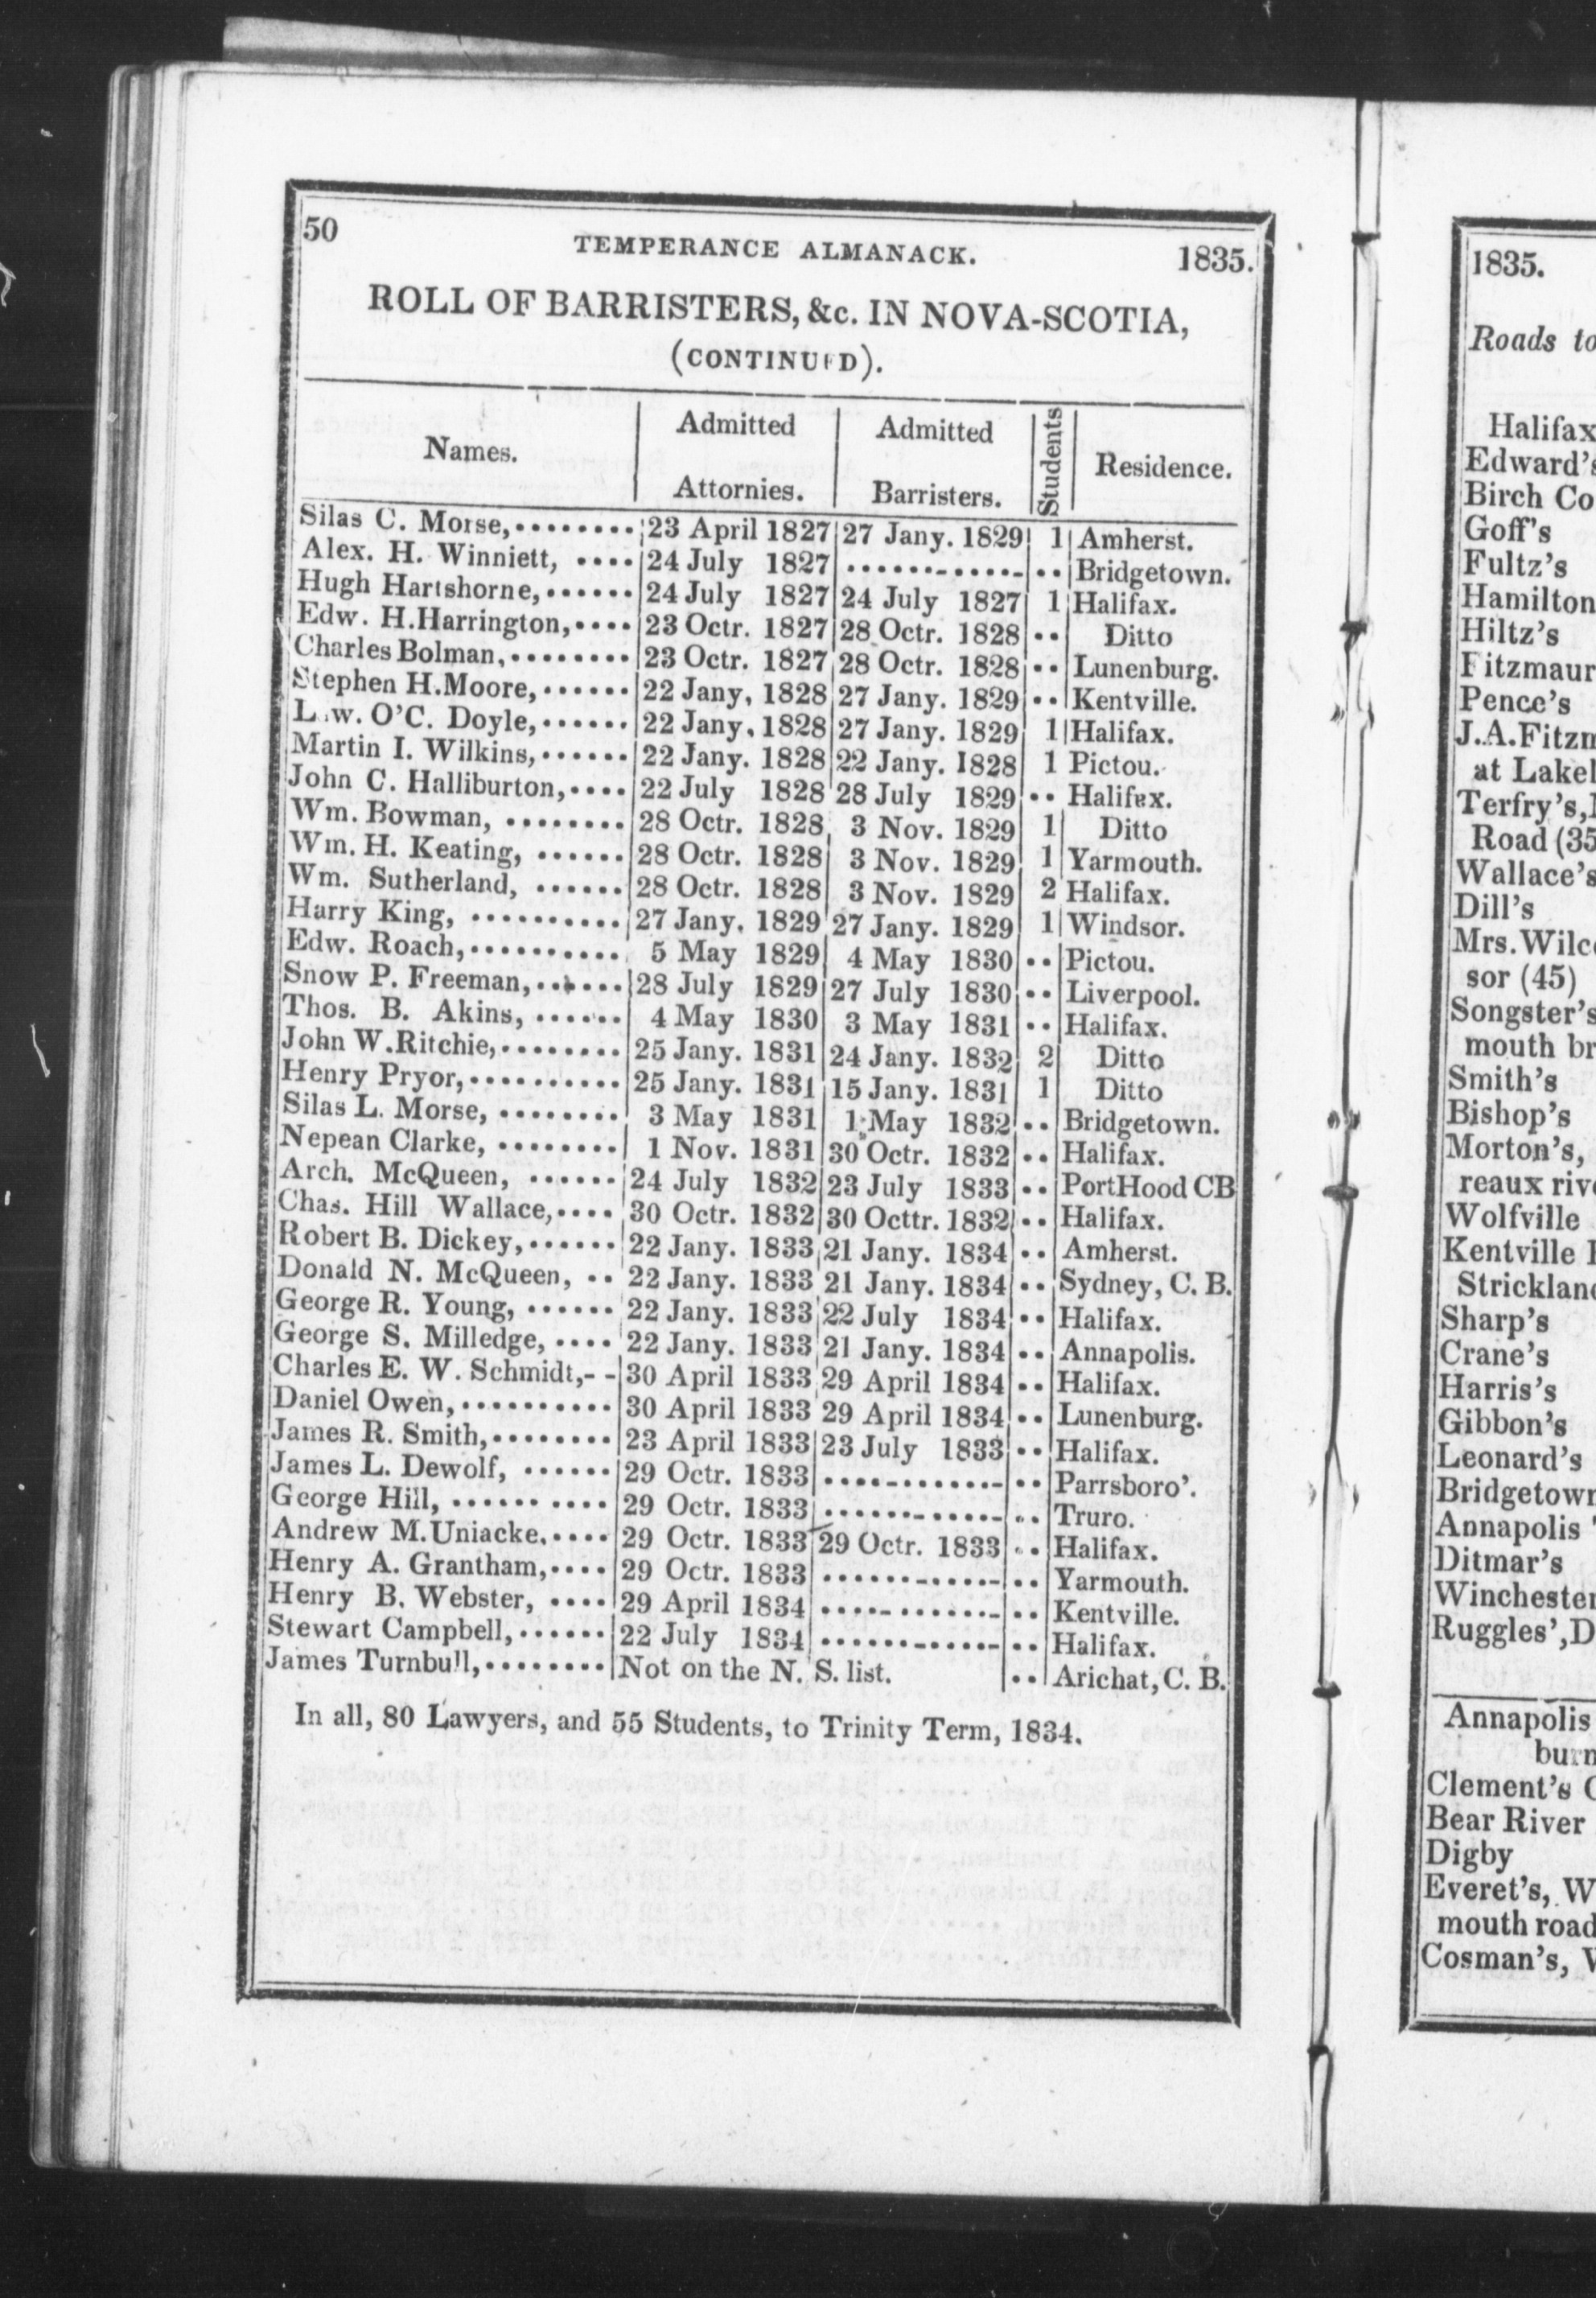 50 TEMPERANCE ALMANACK. 1835.
ROLL OF BARRISTERS, &c. IN NOVA-SCOTIA,
(CONTINUED).
Names. Admitted Attornies. Admitted Barristers. Students Residence.
Silas C. Morse,........ 23 April 1827 27 Jany. 1829 1 Amherst.
Alex. H. Winniett, .... 24 July 1827 ......-....- .. Bridgetown.
Hugh Hartshorne,...... 24 July 1827 24 July 1827 1 Halifax.
Edw. H.Harrington,.... 23 Octr. 1827 28 Octr. 1828 .. Ditto
Charles Bolman,........ 23 Octr. 1827 28 Octr. 1828 .. Lunenburg.
Stephen H.Moore,...... 22 Jany, 1828 27 Jany. 1829 .. Kentville.
L.w. O'C. Doyle,...... 22 Jany, 1828 27 Jany. 1829 1 Halifax.
Martin I. Wilkins,...... 22 Jany. 1828 22 Jany. 1828 1 Pictou.
John C. Halliburton,.... 22 July 1828 28 July 1829 .. Halifax.
Wm. Bowman, ........ 28 Octr. 1828 3 Nov. 1829 1 Ditto
Wm. H. Keating, ...... 28 Octr. 1828 3 Nov. 1829 1 Yarmouth.
Wm. Sutherland, ...... 28 Octr. 1828 3 Nov. 1829 2 Halifax.
Harry King, .......... 27 Jany. 1829 27 Jany. 1829 1 Windsor.
Edw. Roach,.......... 5 May 1829 4 May 1830 .. Pictou.
Snow P. Freeman,...... 28 July 1829 27 July 1830 .. Liverpool.
Thos. B. Akins, ...... 4 May 1830 3 May 1831 .. Halifax.
John W.Ritchie,........ 25 Jany. 1831 24 Jany. 1832 2 Ditto
Henry Pryor,.......... 25 Jany. 1831 15 Jany. 1831 1 Ditto
Silas L. Morse, ........ 3 May 1831 1 May 1832 .. Bridgetown.
Nepean Clarke, ........ 1 Nov. 1831 30 Octr. 1832 .. Halifax.
Arch. McQueen, ...... 24 July 1832 23 July 1833 .. PortHood CB
Chas. Hill Wallace,.... 30 Octr. 1832 30 Octtr. 1832 .. Halifax.
Robert B. Dickey,...... 22 Jany. 1833 21 Jany. 1834 .. Amherst.
Donald N. McQueen, .. 22 Jany. 1833 21 Jany. 1834 .. Sydney, C. B.
George R. Young, ...... 22 Jany. 1833 22 July 1834 .. Halifax.
George S. Milledge, .... 22 Jany. 1833 21 Jany. 1834 .. Annapolis.
Charles E. W. Schmidt,- - 30 April 1833 29 April 1834 .. Halifax.
Daniel Owen,.......... 30 April 1833 29 April 1834 .. Lunenburg.
James R. Smith,........ 23 April 1833 23 July 1833 .. Halifax.
James L. Dewolf, ...... 29 Octr. 1833 ....-......- .. Parrsboro'.
George Hill, .......... 29 Octr. 1833 ......-....- .. Truro.
Andrew M.Uniacke,.... 29 Octr. 1833 29 Octr. 1833 .. Halifax.
Henry A. Grantham,.... 29 Octr. 1833 ......-....- .. Yarmouth.
Henry B. Webster, .... 29 April 1834 ....-......- .. Kentville.
Stewart Campbell,...... 22 July 1834 ......-....- .. Halifax.
James Turnbull,........ Not on the N. S. list. .. Arichat, C. B.
In all, 80 Lawyers, and 55 Students, to Trinity Term, 1834.
1835.
Roads to
Halifax
Edward's
Birch Co
Goff's
Fultz's
Hamilton
Hiltz's
Fitzmaur
Pence's
J.A.Fitzm
at Lakel
Terfry's,
Road (35
Wallace's
Dill's
Mrs.Wilc
sor (45)
Songster's
mouth br
Smith's
Bishop's
Morton's,
reaux riv
Wolfville
Kentville
Strickland
Sharp's
Crane's
Harris's
Gibbon's
Leonard's
Bridgetown
Annapolis
Ditmar's
Winchester
Ruggles',D
Annapolis
burn
Clement's
Bear River
Digby
Everet's, W
mouth road
Cosman's,